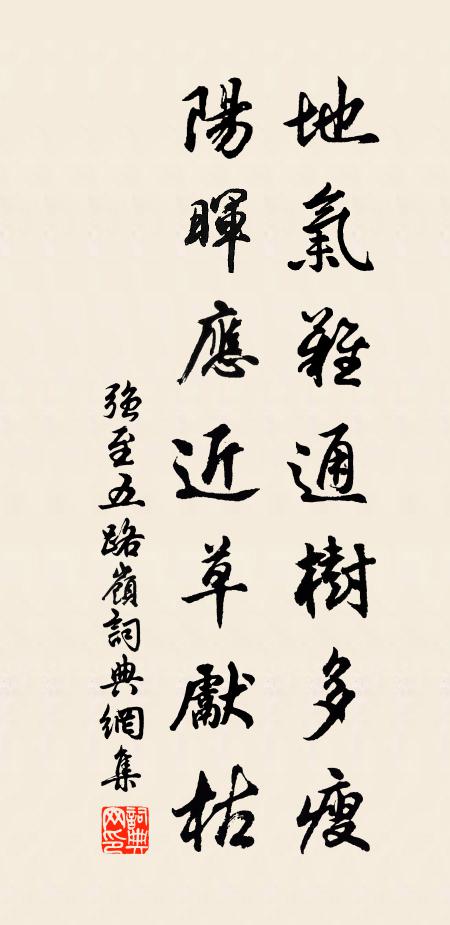 地氣難通樹多瘦
陽暉應近草獻枯
強至五路嶺詞典網集
詞典網印